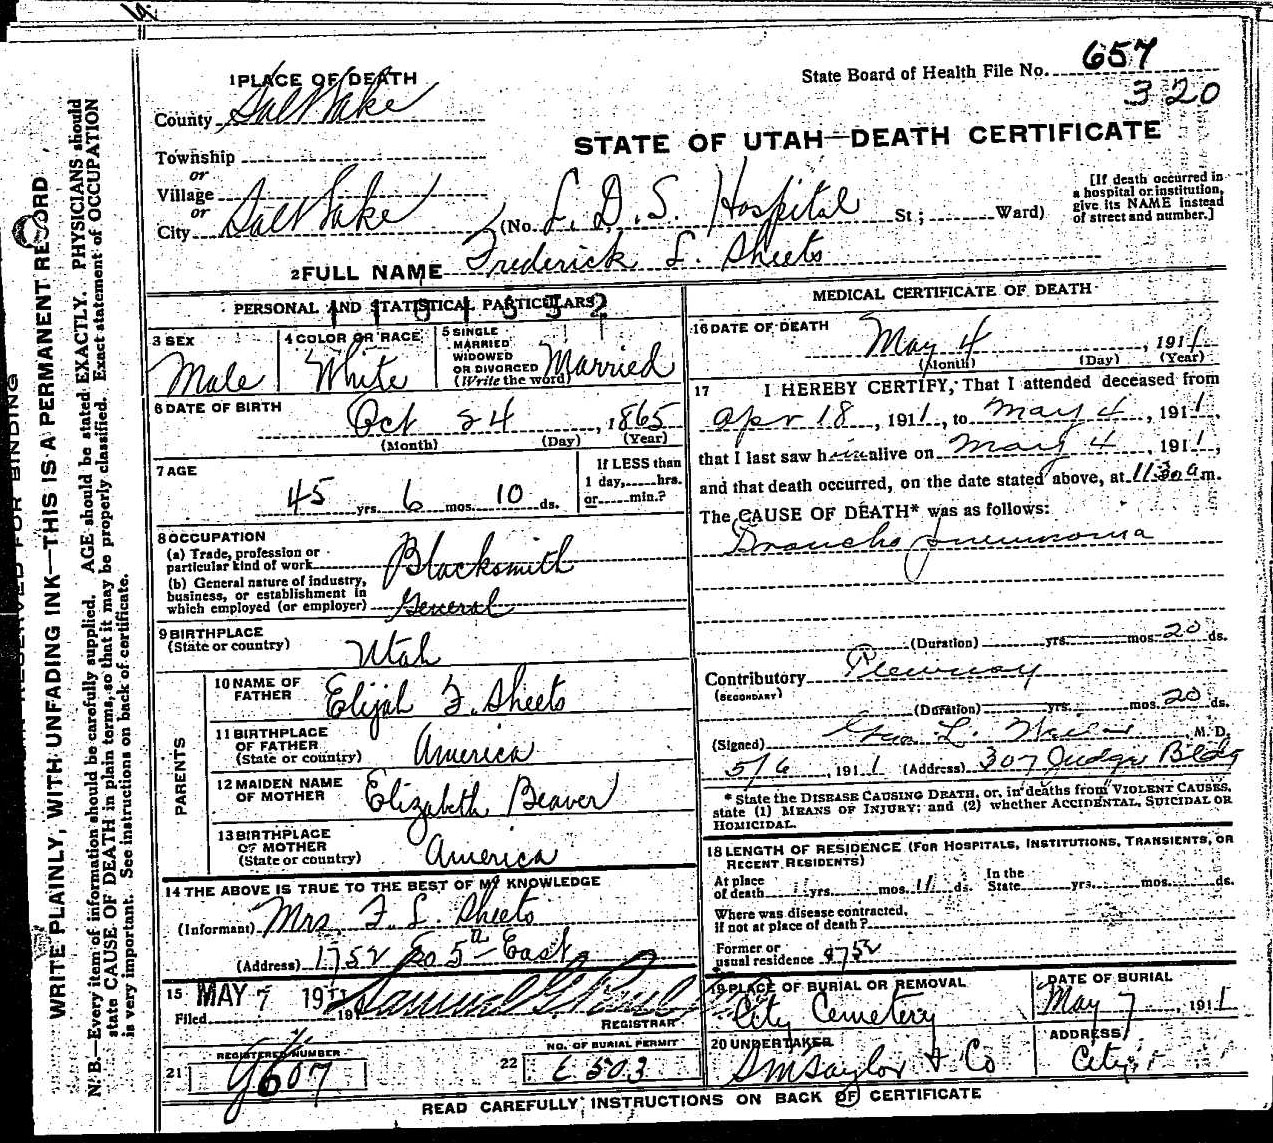 State Board of Health File No. 657
320
1 PLACE OF DEATH
County Salt Lake
STATE OF UTAH—DEATH CERTIFICATE
Township
or
Village
or
City Salt Lake (No. L. D. S. Hospital St; Ward)
[If death occurred in
a hospital or institution,
give its NAME instead
of street and number.]
2 FULL NAME Frederick L. Sheets
PERSONAL AND STATISTICAL PARTICULARS
3 SEX
Male
4 COLOR OR RACE
White
5 SINGLE
MARRIED
WIDOWED
OR DIVORCED
(Write the word)
Married
6 DATE OF BIRTH
Oct 24, 1865
(Month) (Day) (Year)
7 AGE
45 yrs. 6 mos. 10 ds.
If LESS than
1 day, hrs.
or min.?
8 OCCUPATION
(a) Trade, profession or
particular kind of work Blacksmith
(b) General nature of industry,
business, or establishment in
which employed (or employer) General
9 BIRTHPLACE
(State or country) Utah
PARENTS
10 NAME OF
FATHER Elijah F. Sheets
11 BIRTHPLACE
OF FATHER
(State or country) America
12 MAIDEN NAME
OF MOTHER Elizabeth Beaver
13 BIRTHPLACE
OF MOTHER
(State or country) America
14 THE ABOVE IS TRUE TO THE BEST OF MY KNOWLEDGE
(Informant) Mrs. F. L. Sheets
(Address) 1752 So 5th East
15 MAY 7 1911
Filed 191
REGISTRAR
21 REGISTERED NUMBER
607
22 NO. OF BURIAL PERMIT
E 503
MEDICAL CERTIFICATE OF DEATH
16 DATE OF DEATH
May 4, 1911
(Month) (Day) (Year)
17 I HEREBY CERTIFY, That I attended deceased from
Apr 18, 1911, to May 4, 1911,
that I last saw him alive on May 4, 1911,
and that death occurred, on the date stated above, at 11 30 a m.
The CAUSE OF DEATH* was as follows:
Broncho pneumonia
(Duration) yrs. mos. 20 ds.
Contributory Pleurisy
(SECONDARY)
(Duration) yrs. mos. 20 ds.
(Signed) L. M. D.
5/6, 1911 (Address) 307 Judge Bldg
* State the DISEASE CAUSING DEATH, or, in deaths from VIOLENT CAUSES,
state (1) MEANS OF INJURY; and (2) whether ACCIDENTAL, SUICIDAL OR
HOMICIDAL.
18 LENGTH OF RESIDENCE (FOR HOSPITALS, INSTITUTIONS, TRANSIENTS, OR
RECENT RESIDENTS)
At place
of death yrs. mos. 11 ds.
In the
State yrs. mos. ds.
Where was disease contracted,
if not at place of death?
Former or
usual residence
19 PLACE OF BURIAL OR REMOVAL
City Cemetery
DATE OF BURIAL
May 7, 1911
20 UNDERTAKER
S M Taylor & Co
ADDRESS
City
READ CAREFULLY INSTRUCTIONS ON BACK OF CERTIFICATE
WRITE PLAINLY, WITH UNFADING INK—THIS IS A PERMANENT RECORD
N. B.—Every item of information should be carefully supplied. AGE should be stated EXACTLY. PHYSICIANS should
state CAUSE OF DEATH in plain terms, so that it may be properly classified. Exact statement of OCCUPATION
is very important. See instructions on back of certificate.